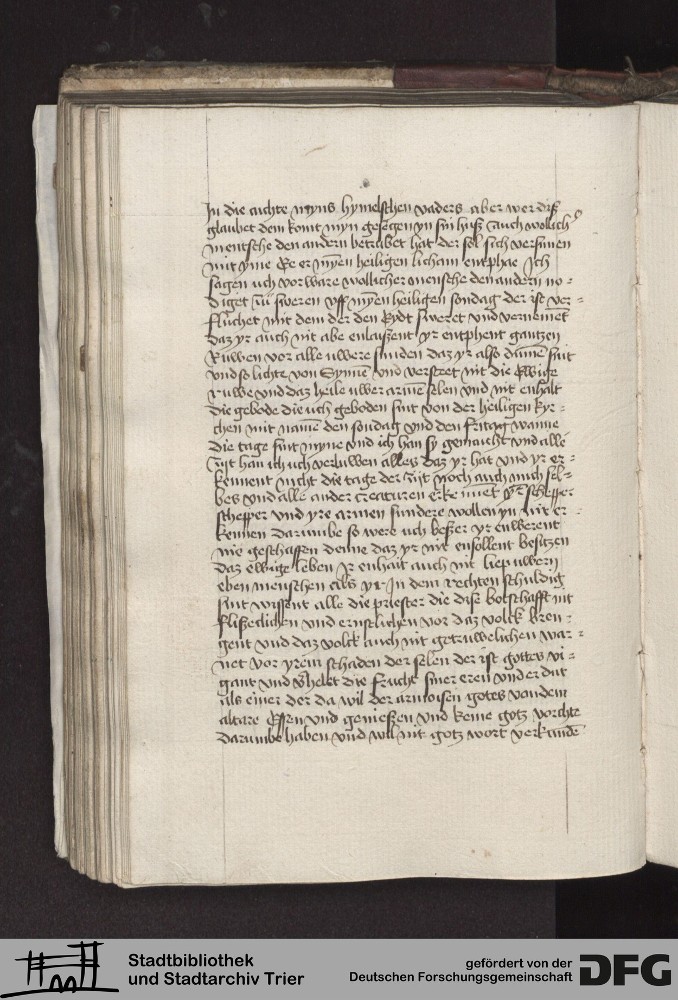 In die aichte myns hymelschen vaders aber wer diß
glaubet dem komt myn gesegen yn sin huß Auch wollich
mentsche den andern betrubet hat der sol sich versunen
mit yme Ee er mynen heiligen licham entphae Ich
sagen uch vor ware wollicher mensche den andern no-
diget zů sweren uff mynen heiligen sondag der ist ver-
fluchet mit dem der den Eydt sweret vnd vernement
daz yr auch nit abe enlaißent yr entphent gantzen
Ruwen vor alle uwere sunden daz yr also daine sint
vnd so lichte von Synnen vnd versteet nit die Ewige
ruwe vnd daz heile uwer armen selen vnd nit enhalt
die gebode die uch geboden sint von der heiligen kyr-
chen mit namen den sondag vnd den fritag wanne
die tage sint myne vnd ich han sy gemaicht vnd alle
zijt han ich uch verluwen alles daz yr hat vnd yr er-
kennent nicht die tage der zijt noch auch mich sel-
bes vnd alle ander creaturen erkennet yren scheffer
scheffer vnd yre armen sundere wollen yn nit er-
kennen darumbe so were uch beßer yr enwerent
nie geschaffen denne daz yr nit ensollent besitzen
daz ewige leben Ir enhait auch nit liep uwern
eben menschen als yr In dem rechten schuldig
sint wissent alle die priester die diße botschafft nit
flißeclichen vnd ernstlichen vor daz volck bren-
gent vnd daz volck auch nit getruwelichen war-
net vor yrem schaden der selen der ist gottes vi-
gant vnd verhelet die frucht siner eren vnd er dut
als einer der da wil der armoisen gotes van dem
altare Essen vnd genießen vnd keine gotz vorchte
darumbe haben vnd wil nit gotz wort verkunden
Stadtbibliothek
und Stadtarchiv Trier
gefördert von der
Deutschen Forschungsgemeinschaft
DFG